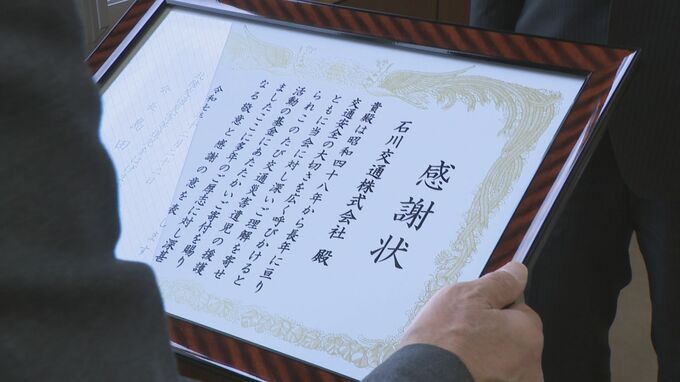 感謝状
石川交通株式会社 殿
貴殿は昭和四十八年から長年に亘り
交通安全の大切さを広く呼びかけると
ともに当会に対し深いご理解を寄せ
られこのたび交通災害遺児の援護
活動の基金に多年のご寄付を賜り
ましたここにあたたかいご厚志に対し深甚
なる敬意と感謝の意を表し
令和七